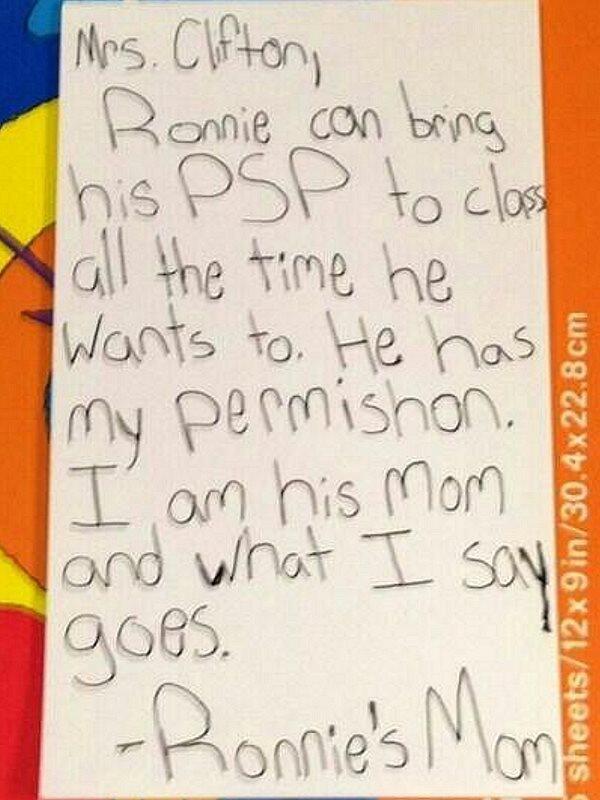 Mrs. Clifton,
Ronnie can bring
his PSP to class
all the time he
wants to. He has
my permishon.
I am his Mom
and what I say
goes.
-Ronnie's Mom
sheets/12x9in/30.4x22.8cm